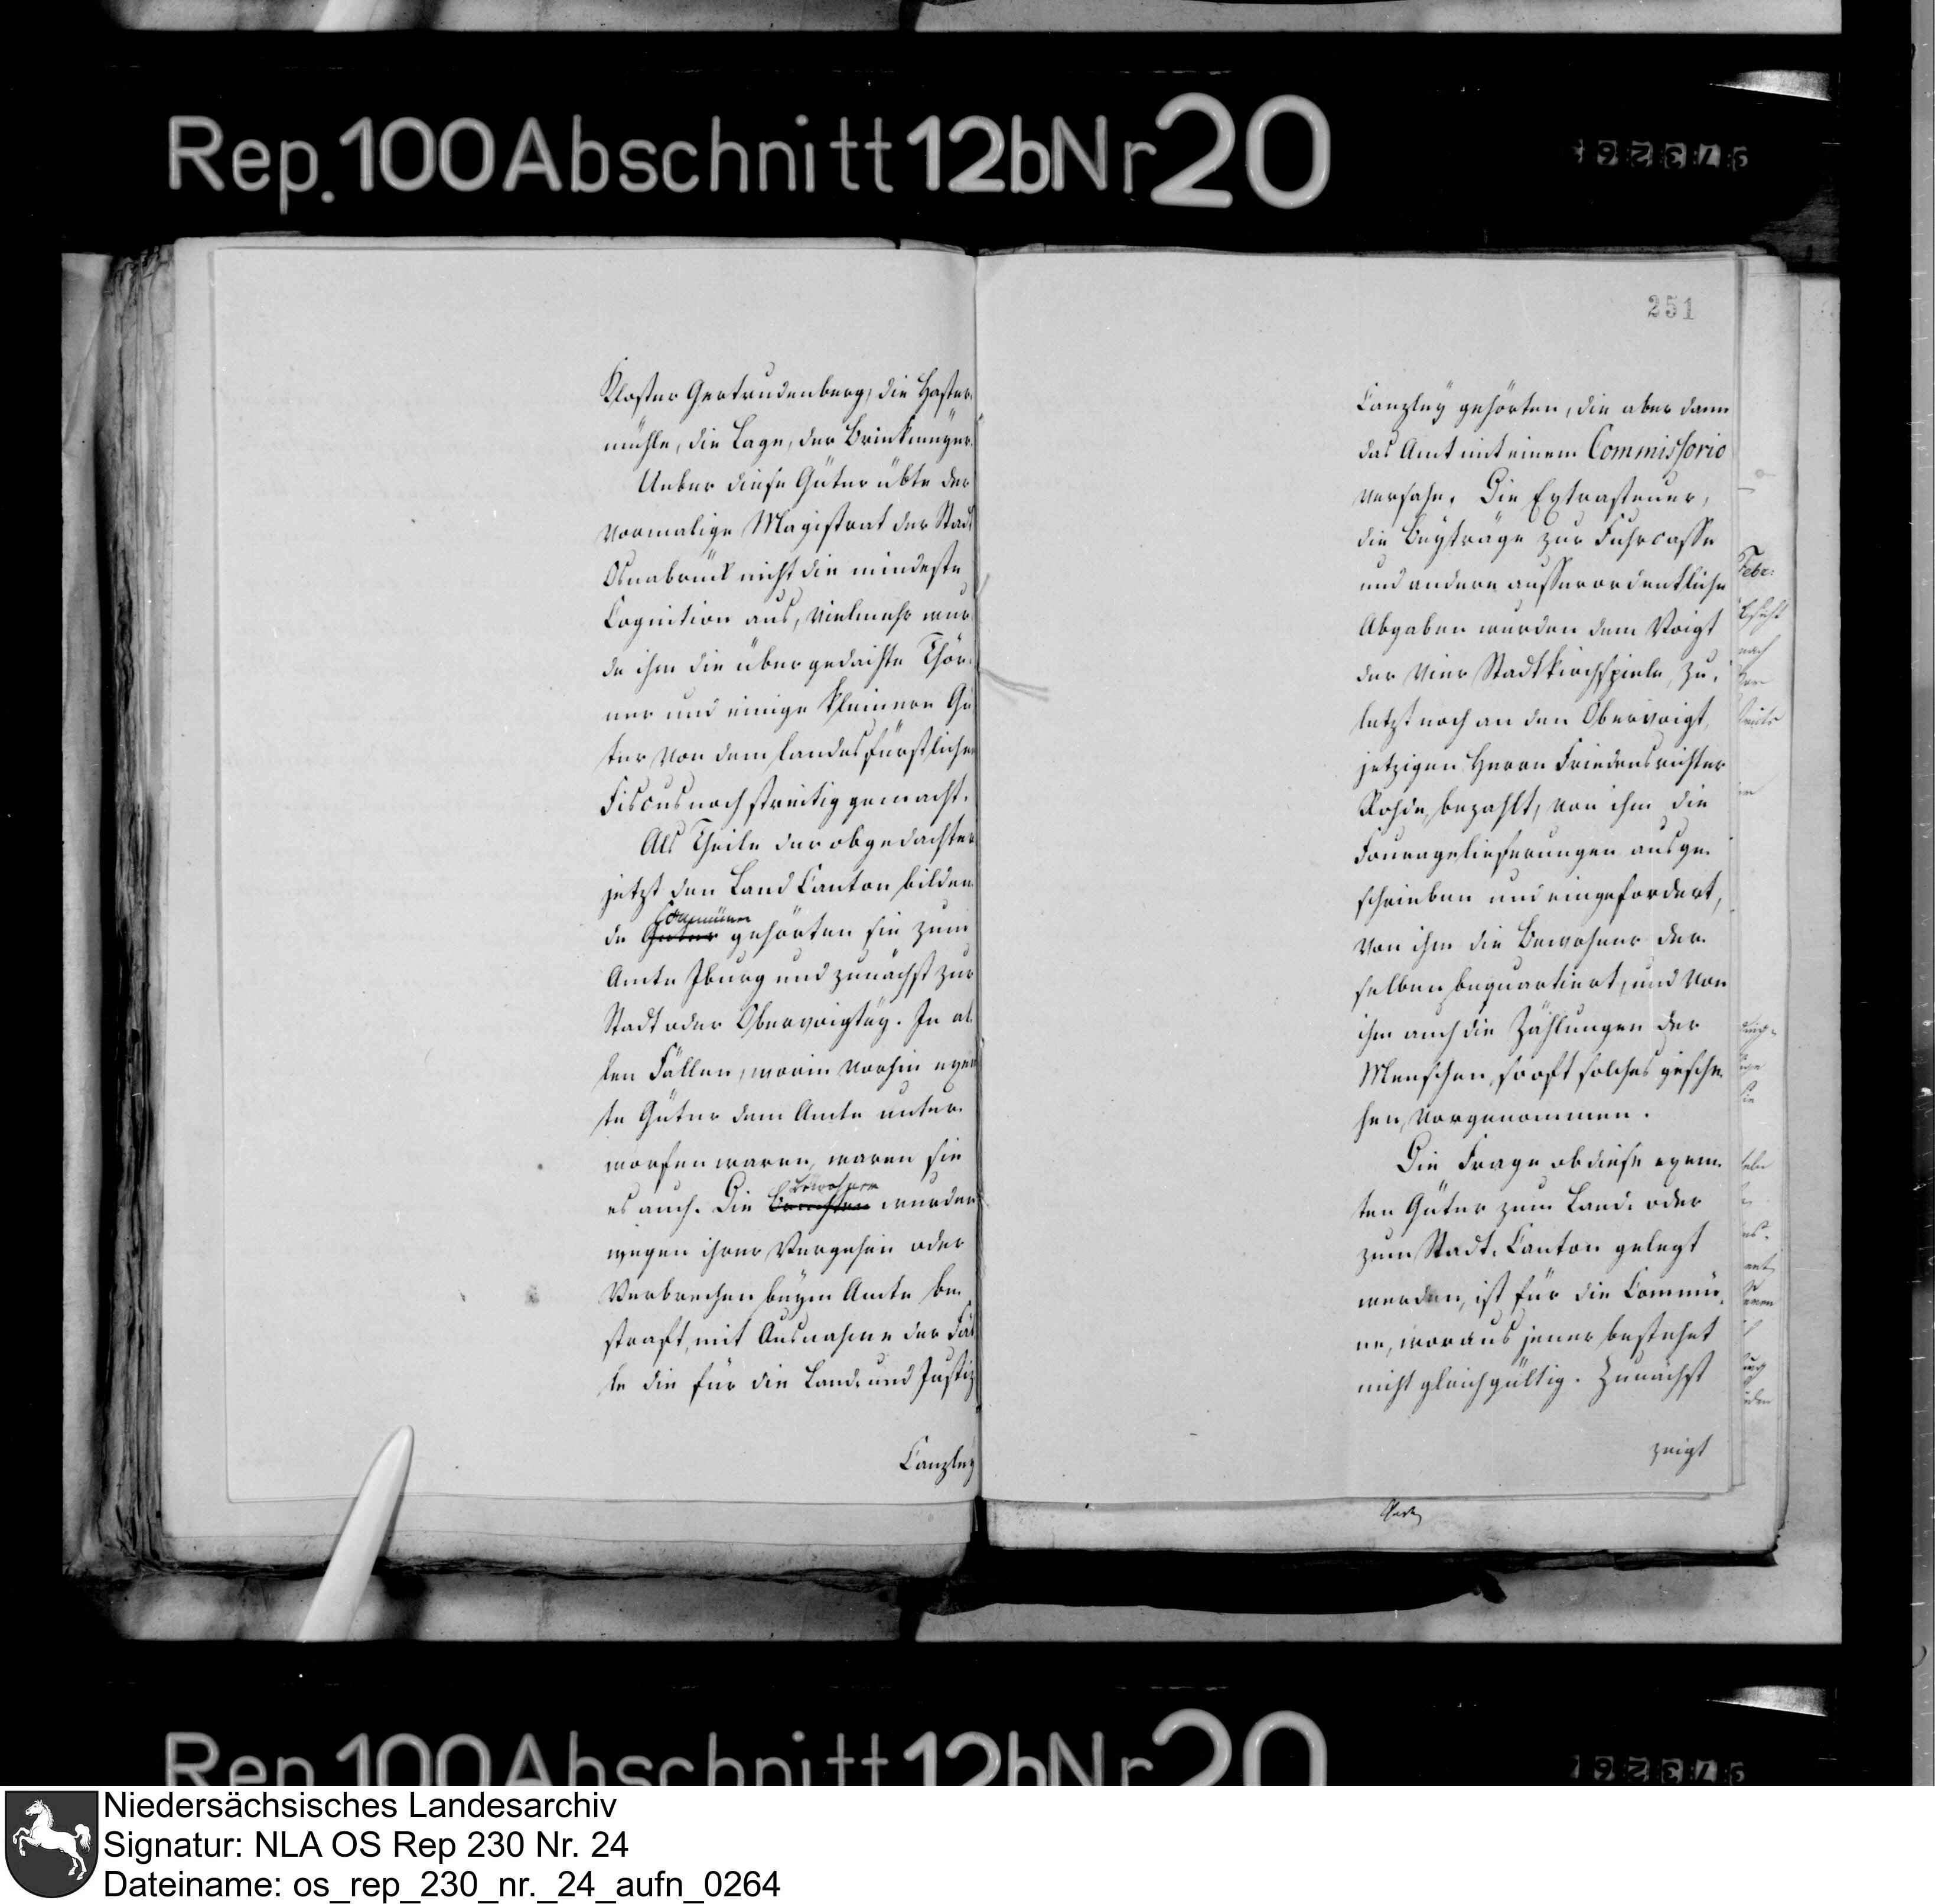 Rep. 100 Abschnitt 12b Nr 20
Kloster Gertrudenberg, die Haster-
mühle, die Lage, der Brinkmeyer.
Ueber diese Güter übte der
vormalige Magistrat der Stadt
Osnabrück nicht die mindeste
Cognition aus, vielmehr wur-
de ihm die über gedachte Thör-
ner und einige kleinere Gü-
ter von dem landesfürstlichen
Fiscus noch streitig gemacht.
Als Theile der obgedachter
jetzt den Land Canton bilden-
Commüne
de Güter gehörten sie zum
Amte Iburg und zunächst zur
Stadt oder Obervoigtey. In al-
len Fällen, worin vorhin exem-
te Güter dem Amte unter-
worfen waren, waren sie
Bewohner
es auch. Die wurden
wegen ihrer Vergehen oder
Verbrechen beym Amte be-
straft, mit Ausnahme der Fäl-
le die für die Land- und Justiz
Canzley
251
Canzley gehörten, die aber dann
das Amt mit einem Commissorio
versahe. Die Extrasteuer,
die Beyträge zur Fuhrcasse
und andere ausserordentliche
Abgaben wurden dem Voigt
der vier Stadtkirchspiele, zu-
letzt noch an den Obervoigt,
jetzigen Herrn Friedensrichter
Rohde, bezahlt, von ihm die
Fouragelieferungen ausge-
schrieben und eingefordert,
von ihm die Bewohner der-
selben bequartiert, und von
ihm auch die Zählungen der
Menschen, so oft solches gesche-
hen, vorgenommen.
Die Frage ob diese exem-
ten Güter zum Land- oder
zum Stadt-Canton gelegt
werden, ist für die Commü-
ne, woraus jener bestehet
nicht gleichgültig. Zunächst
zeigt
Febr.
Rep. 100 Abschnitt 12b Nr 20
Niedersächsisches Landesarchiv
Signatur: NLA OS Rep 230 Nr. 24
Dateiname: os_rep_230_nr._24_aufn_0264